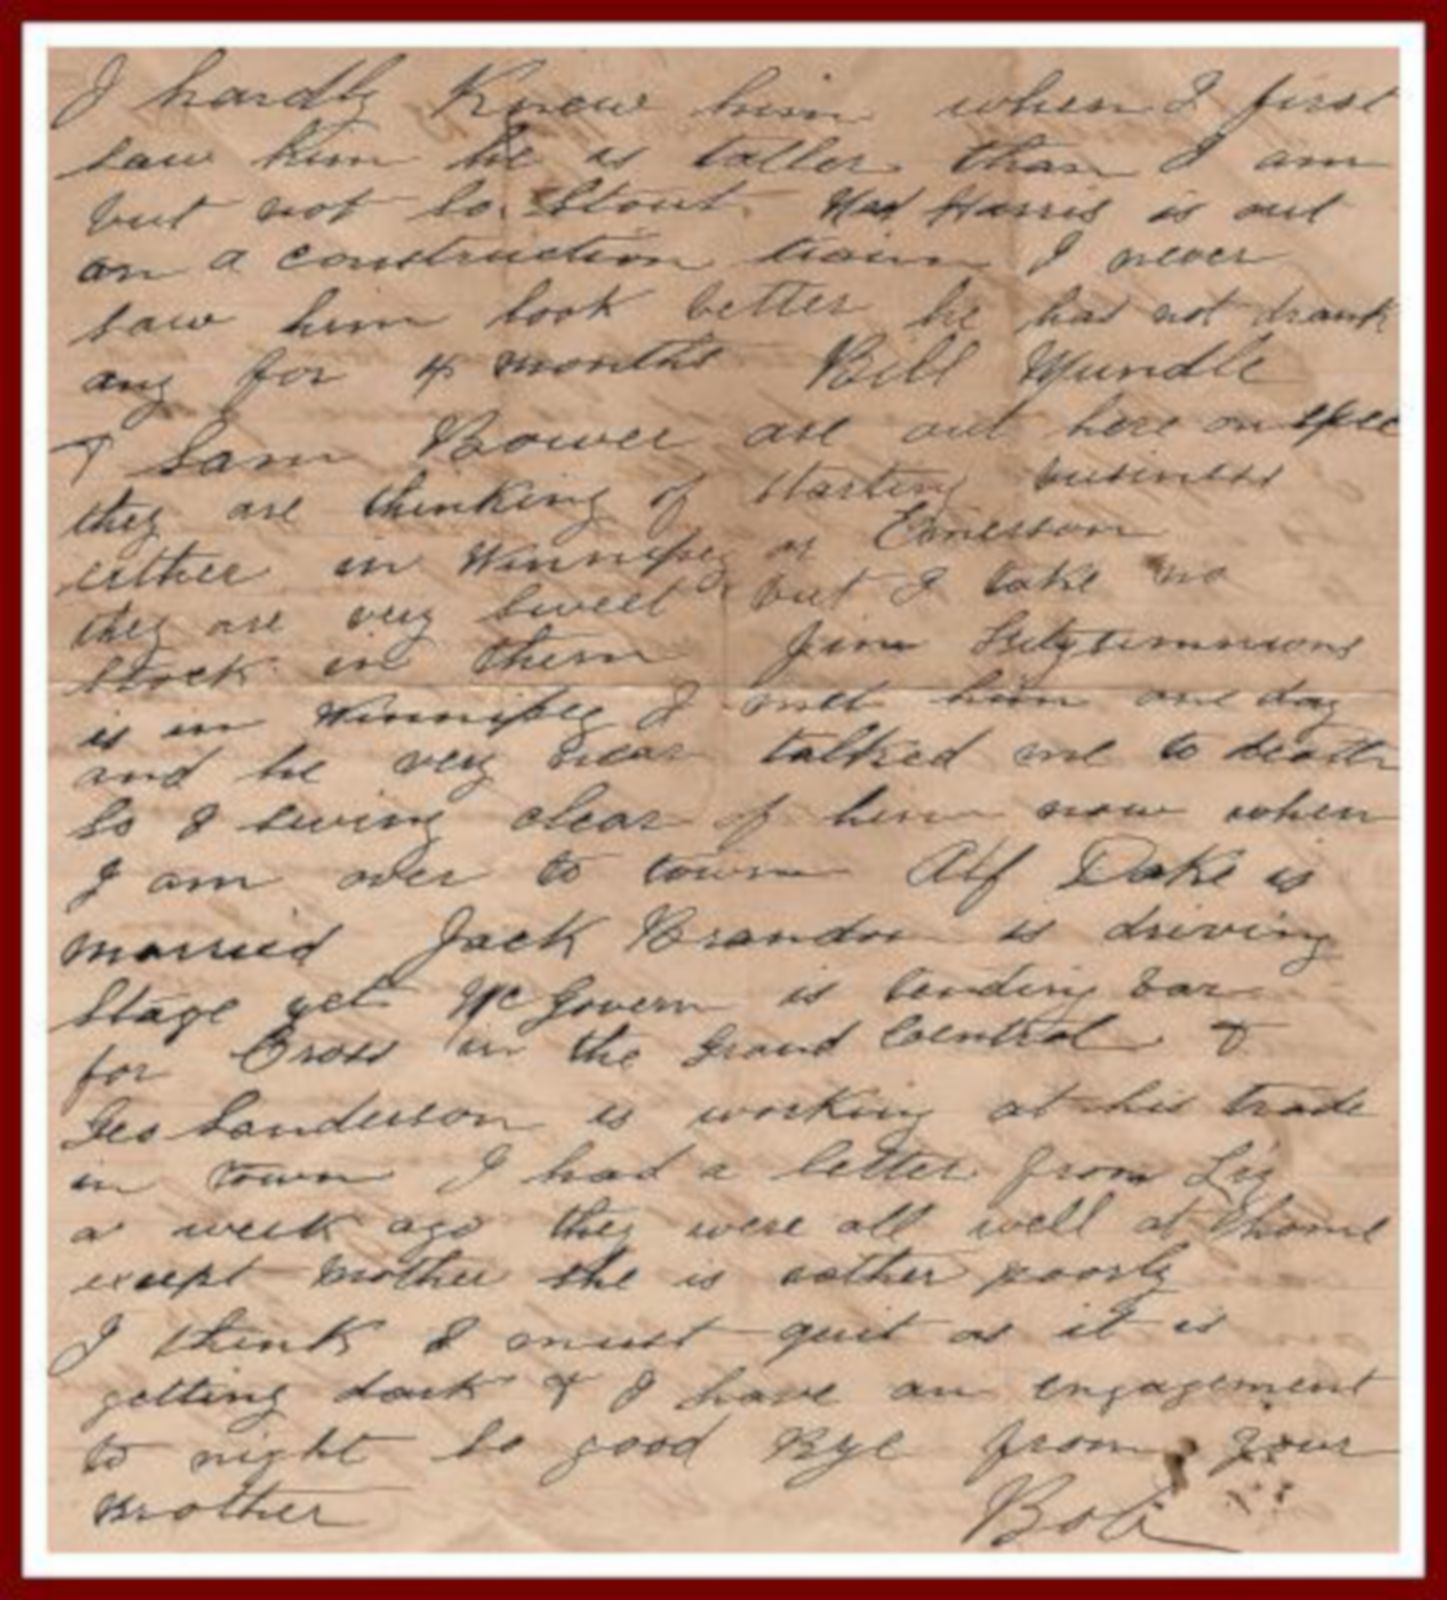 I hardly Knew him when I first
saw him he is taller than I am
but not so Stout. Harris is out
on a construction train I never
saw him look better he has not drank
any for 4 months Bill Mundle
& Sam Bower are out here on spec
they are thinking of starting business
either in Winnipeg or Emerson
they are very sweet but I take no
stock in them Jim Fitzsimmons
is in Winnipeg I met him one day
and he very near talked me to death
So I swing clear of him now when
I am over to town Alf Dake is
married Jack Brandon is driving
Stage yet McGovern is tending bar
for Cross in the Grand Central &
Geo Sanderson is working at his trade
in town I had a letter from Liz
a week ago they were all well at home
except Mother she is rather poorly
I think I must quit as it is
getting dark & I have an engagement
to night so good Bye from your
Brother Bob